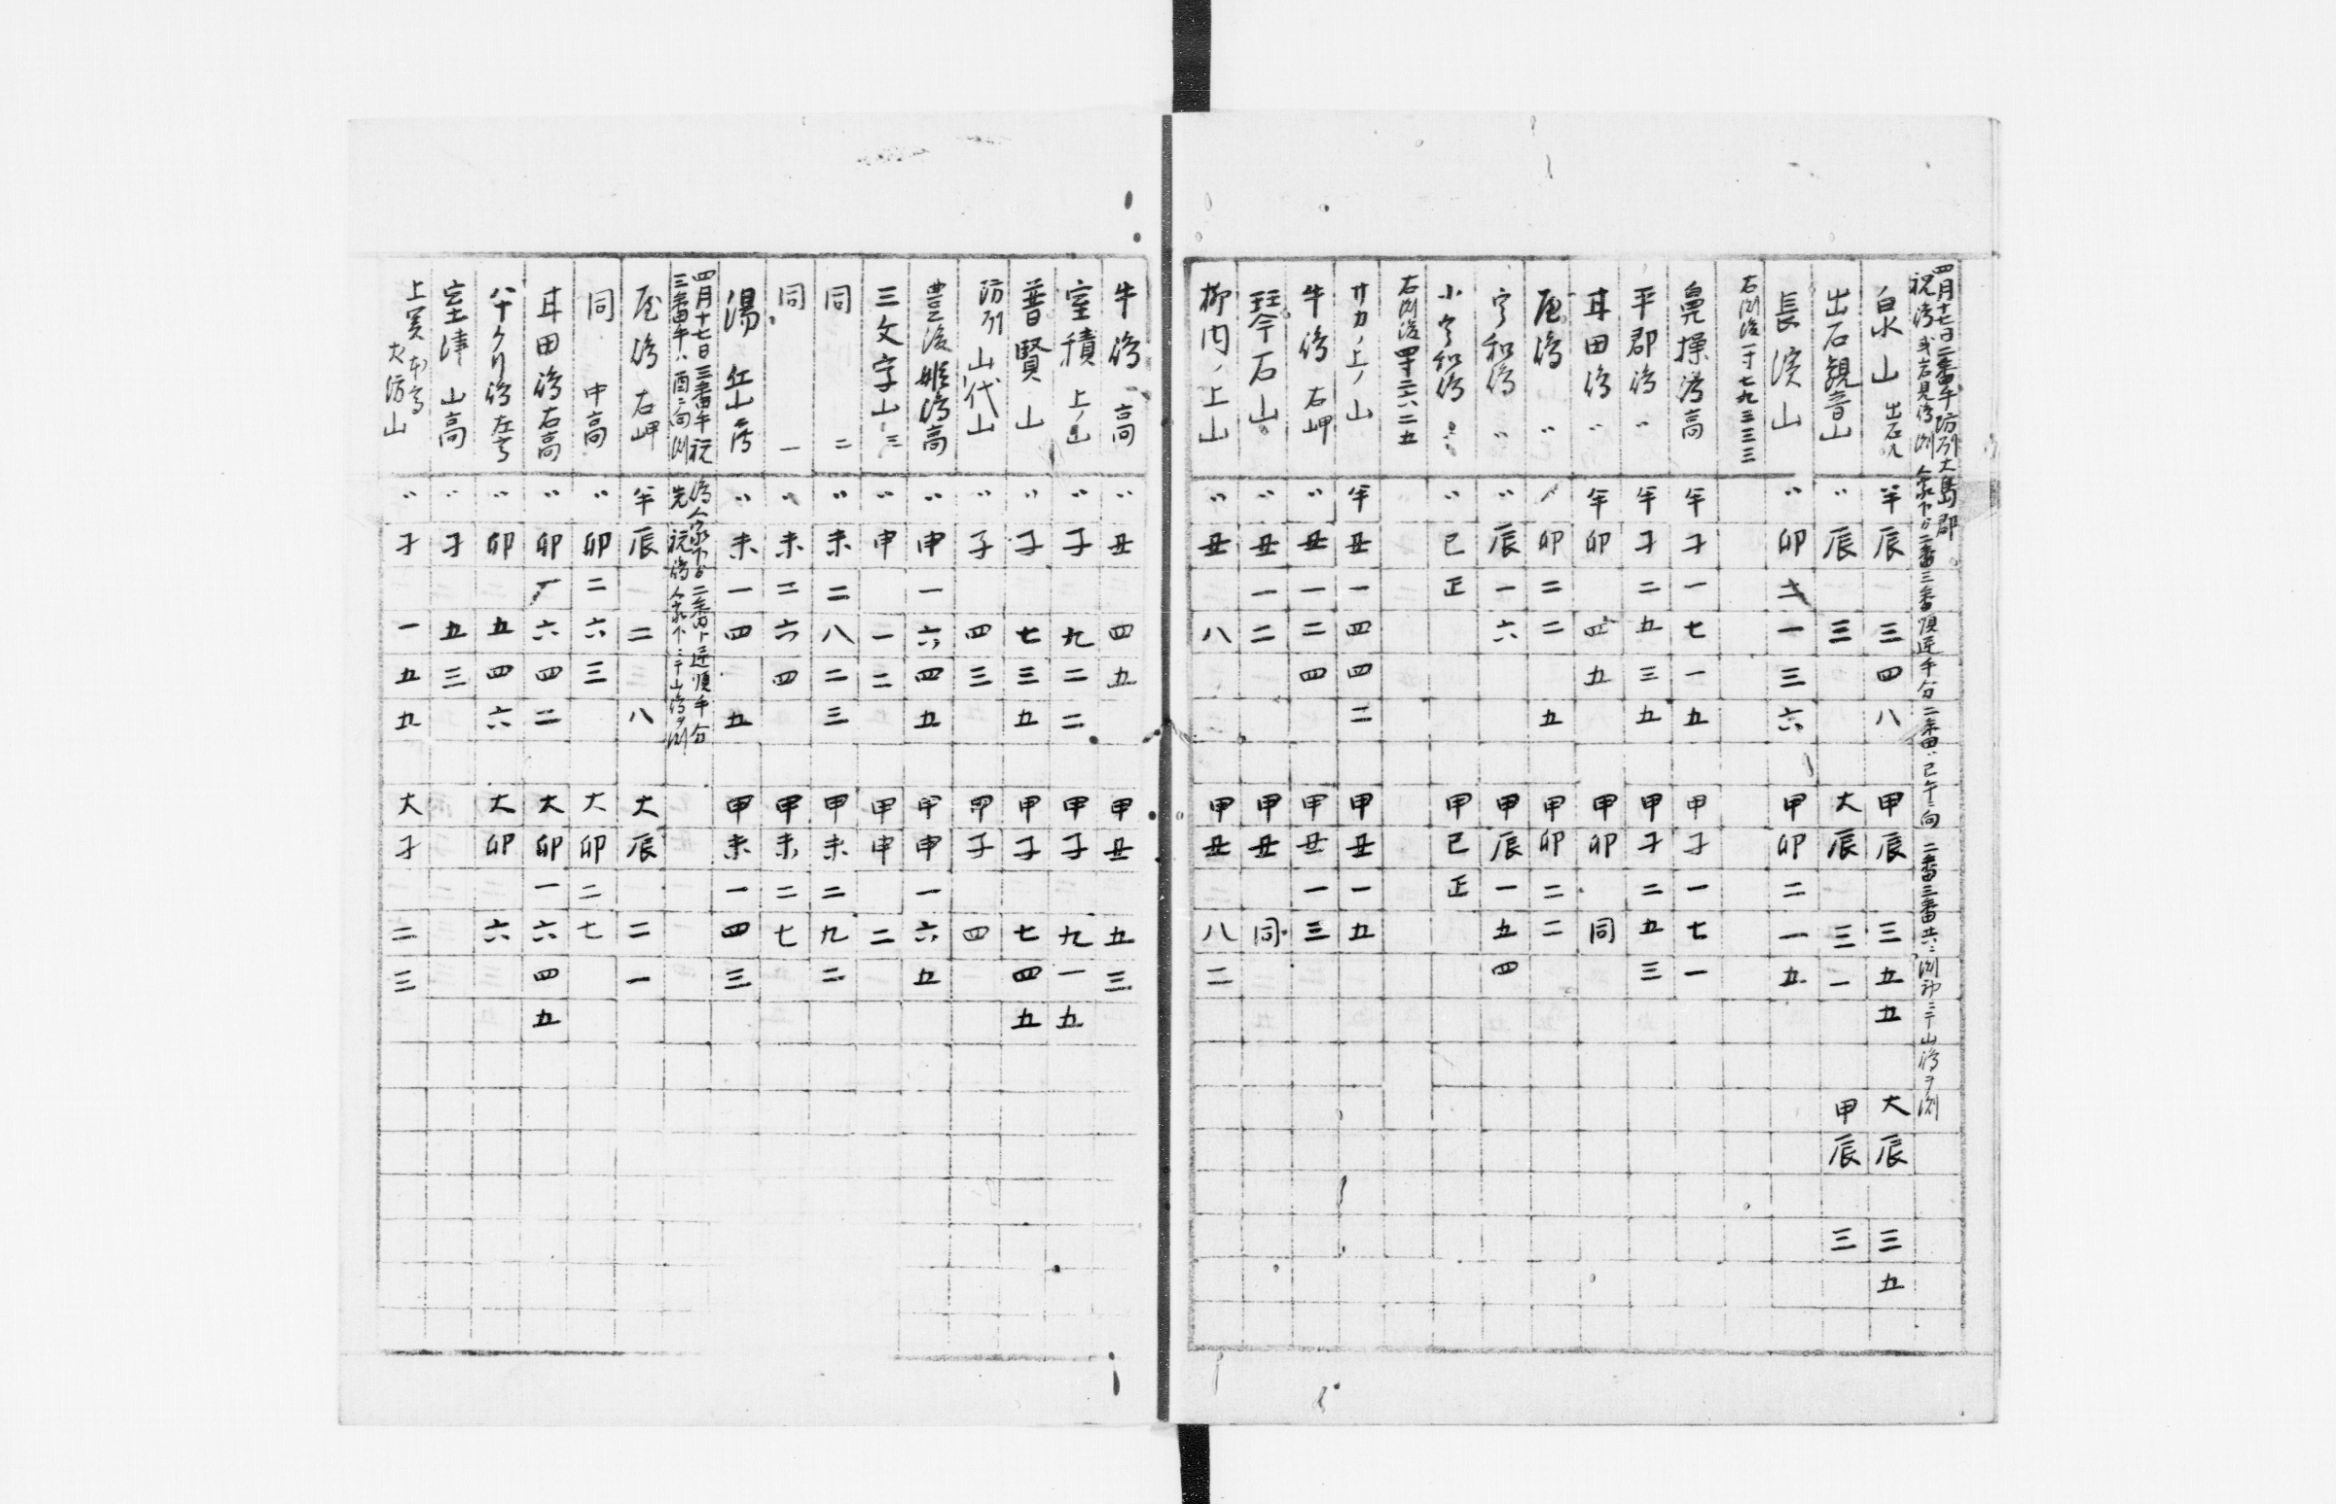 四月十七日二番午防州大島郡
祝島 人家下ゟ二番三番頂逆手分 二番ハ巳午ニ向 二番三番共ニ測 山島ヲ測
白木山 出石人 半辰三四八 甲辰三五五 大辰三五
出石観音山 〃辰三 大辰三一 甲辰三
長浜山 〃卯二一三六 甲卯二一五
右測後一寸七九三三三
鼻操島高 半子一七一五 甲子一七一
平郡島〃 半子二五三五 甲子二五三
耳田島〃 半卯四五 甲卯同
尾島〃 〃卯二二五 甲卯二二
宇和島〃 〃辰一六 甲辰一五四
小宇和島〃 〃巳正 甲巳正
右測後
サカノ上ノ山 半丑一四四二 甲丑一五
牛島右岬 〃丑一二四 甲丑一三
琴石山 〃丑一二 甲丑同
柳内ノ上山 〃丑八 甲丑八二
牛島高 〃丑四五 甲丑五三
室積上ノ山 〃子九二二 甲子九一五
普賢山 〃子七三五 甲子七四五
防州山代山 〃子四三 甲子四
豊後姫島高 〃申一六四五 甲申一六五
三文字山三 〃申一二 甲申二
同二 〃未二八二三 甲未二九二
同一 〃未二六四 甲未二七
湯 〃未一四五 甲未一四三
四月十七日三番午祝島人家下ゟ二番ト逆順手分
三番午ハ酉ニ向測 先祝島人家下 山島ヲ測
尾島右岬 半辰二八 大辰二一
同中高 〃卯二六三 大卯二七
耳田島右高 〃卯一六四二 大卯一六四五
八十クリ島左 〃卯五四六 大卯六
室津山高 〃子五三
上関 大子一五五 大子二三